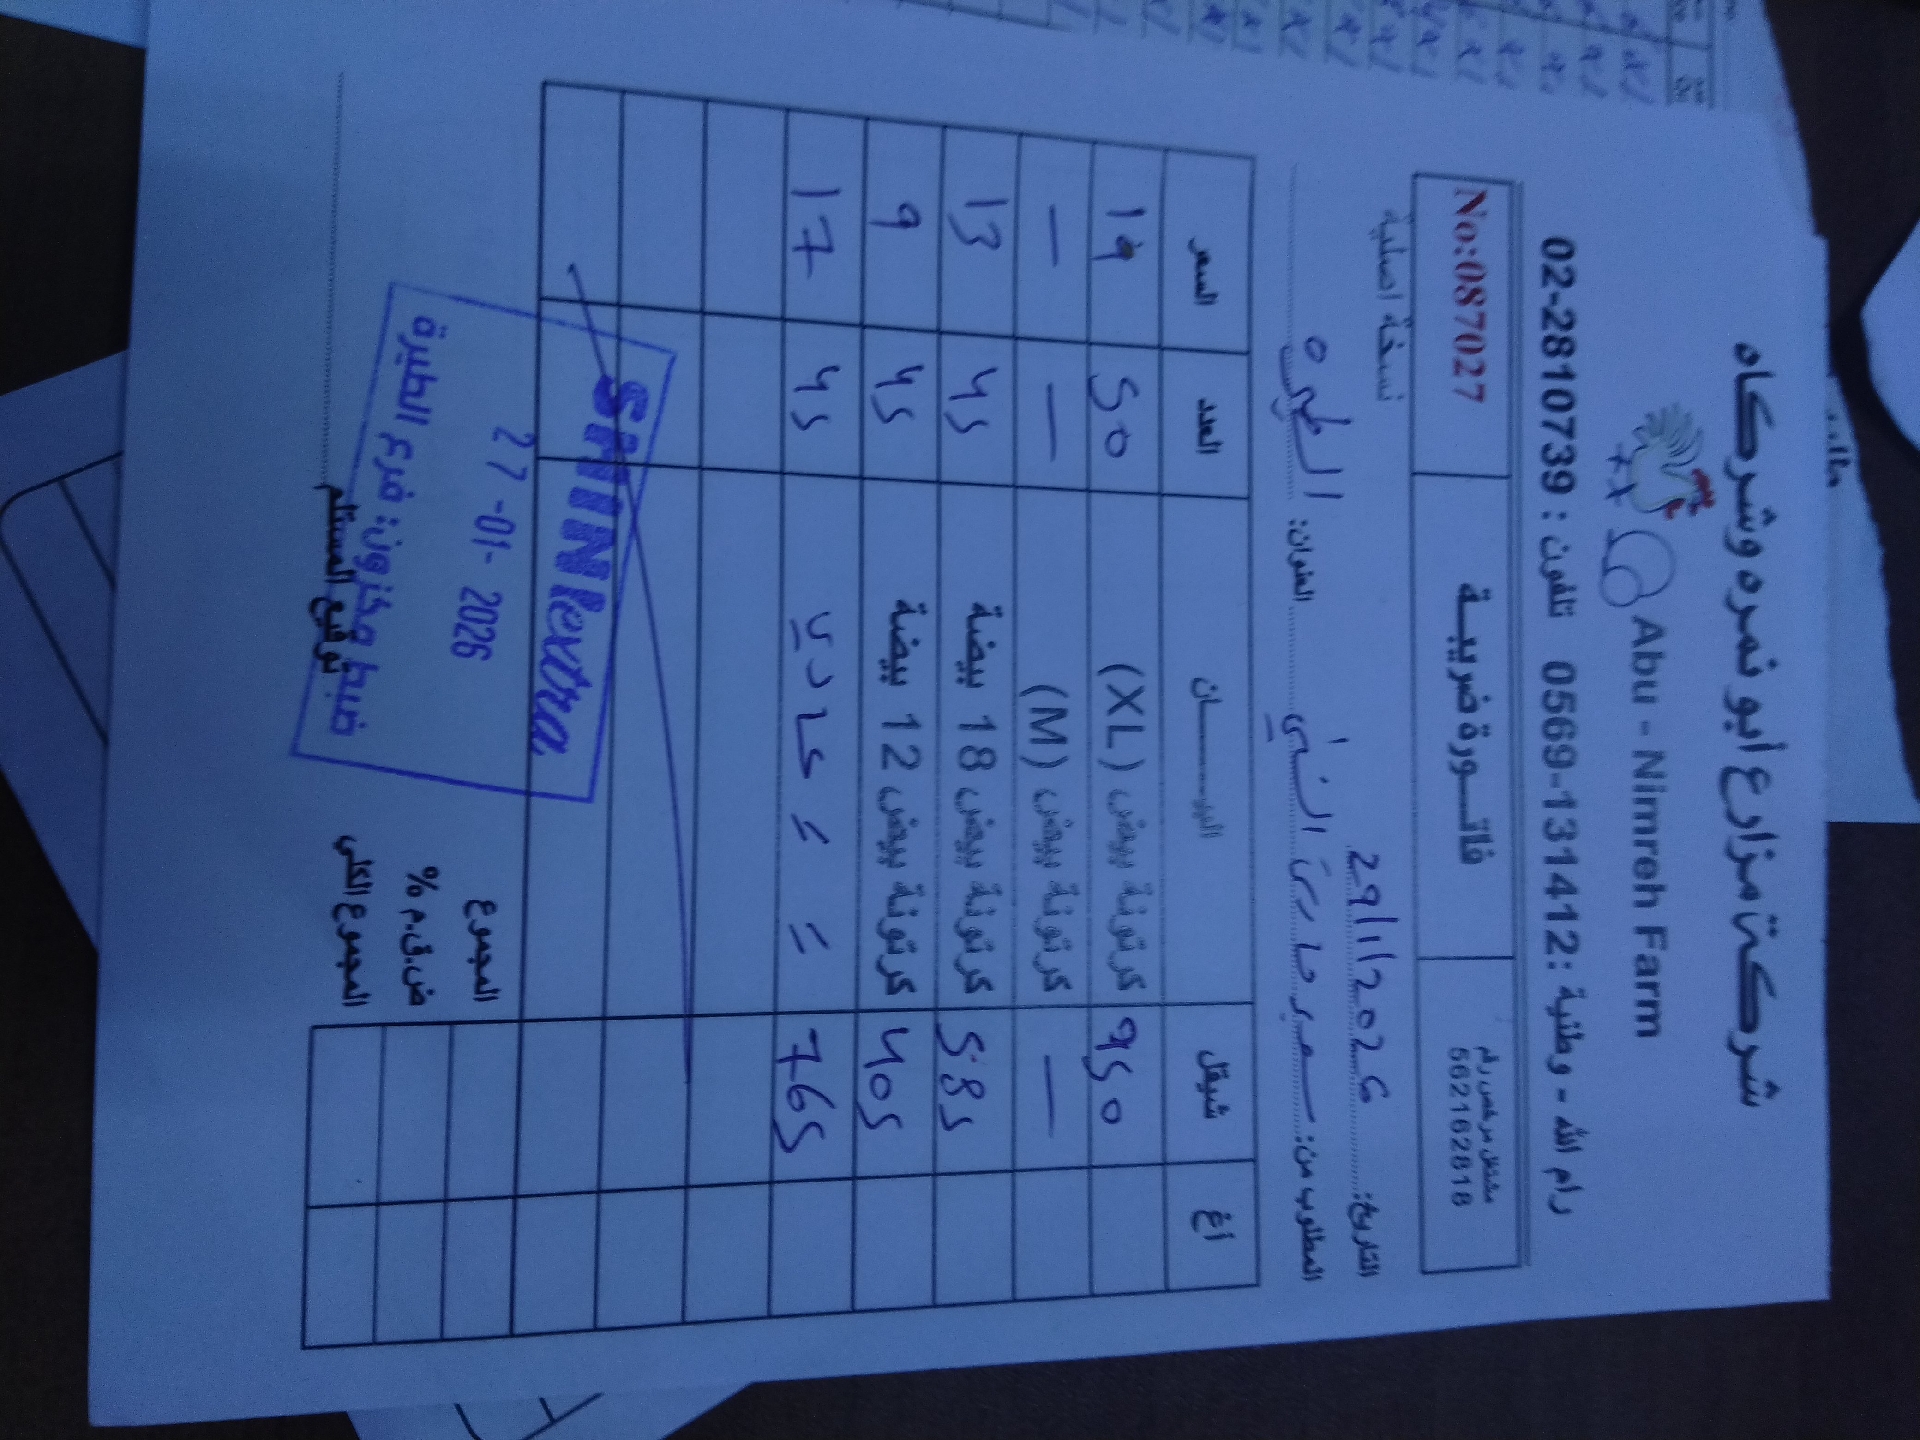 شركة مزارع أبو نمره وشركاه
Abu - Nimreh Farm
رام الله - وطنية : 0569-131412 تلفون : 02-2810739
مشتغل مرخص رقم
562162818
فاتورة ضريبة
No:087027
نسخة اصلية
التاريخ: 29/1/2026
المطلوب من: العنوان: الطيره
أغ شيقل البيـــــان العدد السعر
950 كرتونة بيض (XL) 50 19
— كرتونة بيض (M) — —
585 كرتونة بيض 18 بيضة 45 13
405 كرتونة بيض 12 بيضة 45 9
765 = = 45 17
SHINI extra
27 -01- 2026
ضبط مخزون: فرع الطيرة
المجموع
ض.ق.م %
المجموع الكلي
توقيع المستلم